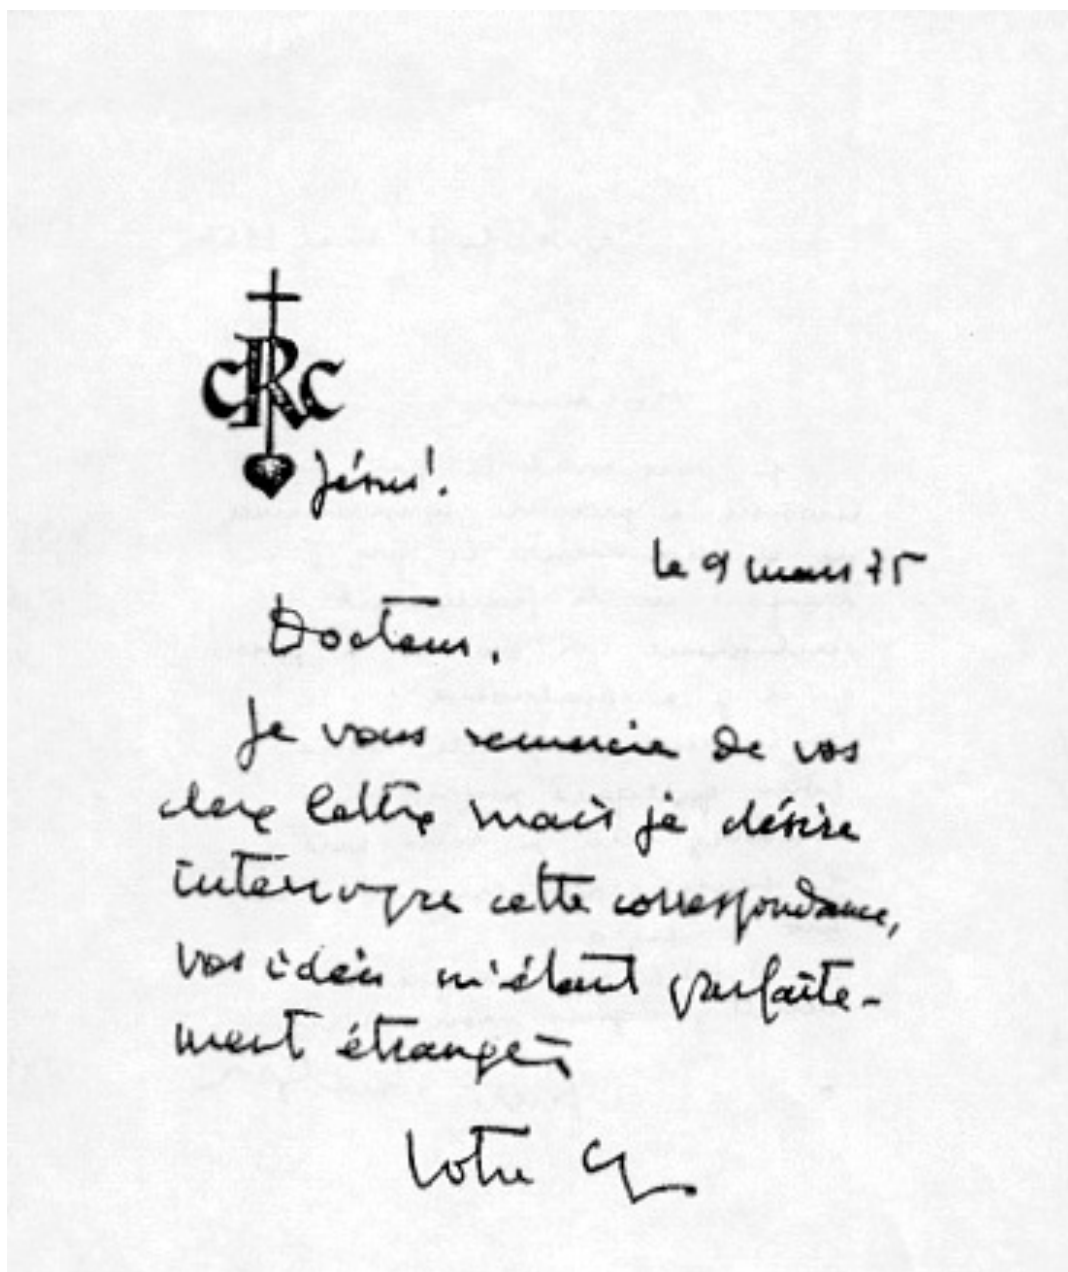 CRC
Jésus !
le 9 mars 75
Docteur,
Je vous remercie de vos
deux lettres mais je désire
interrompre cette correspondance,
vos idées m'étant parfaite-
ment étrangères
Votre